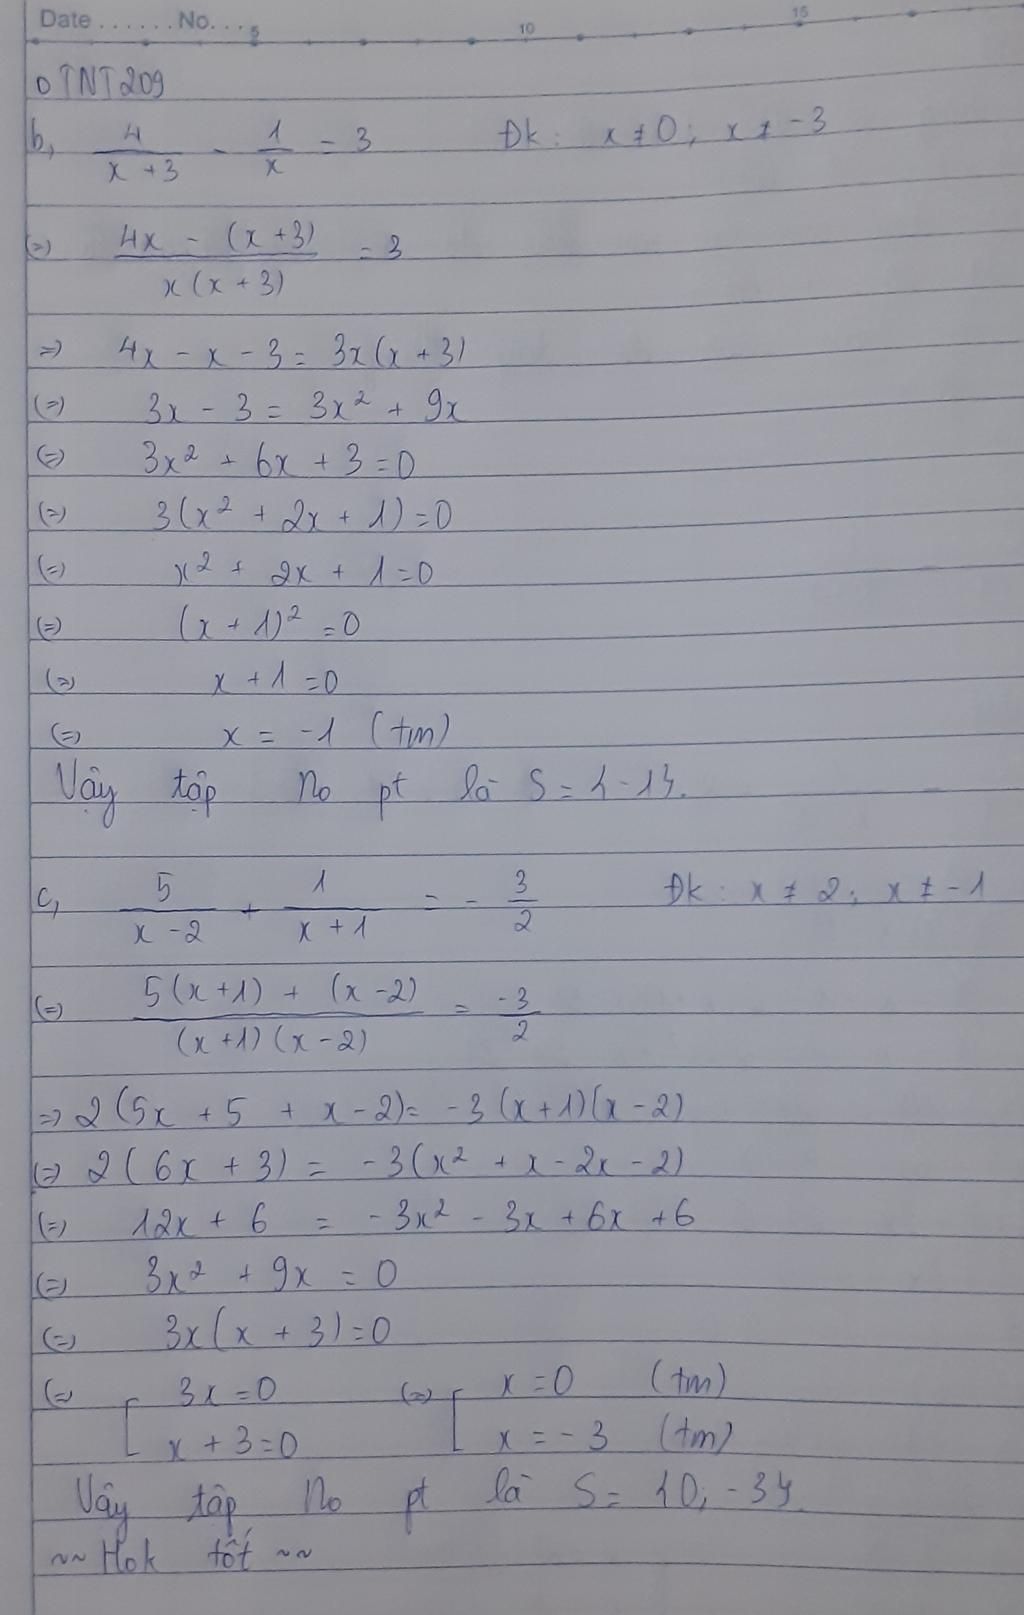 Date ...... No. ... 5 10 15
0TNT209
b, 4/(x+3) - 1/x = 3 Đk: x ≠ 0; x ≠ -3
(=) (4x - (x+3))/(x(x+3)) = 3
=) 4x - x - 3 = 3x(x+3)
(=) 3x - 3 = 3x² + 9x
(=) 3x² + 6x + 3 = 0
(=) 3(x² + 2x + 1) = 0
(=) x² + 2x + 1 = 0
(=) (x + 1)² = 0
(=) x + 1 = 0
(=) x = -1 (tm)
Vậy tập no pt là S = {-1}.
c, 5/(x-2) + 1/(x+1) = - 3/2 Đk: x ≠ 2; x ≠ -1
(=) (5(x+1) + (x-2))/((x+1)(x-2)) = -3/2
=) 2(5x + 5 + x - 2) = -3(x+1)(x-2)
(=) 2(6x + 3) = -3(x² + x - 2x - 2)
(=) 12x + 6 = -3x² - 3x + 6x + 6
(=) 3x² + 9x = 0
(=) 3x(x + 3) = 0
(=) [ 3x = 0 (=) [ x = 0 (tm)
x + 3 = 0 x = -3 (tm)
Vậy tập no pt là S = {0; -3}.
~~ Hok tốt ~~